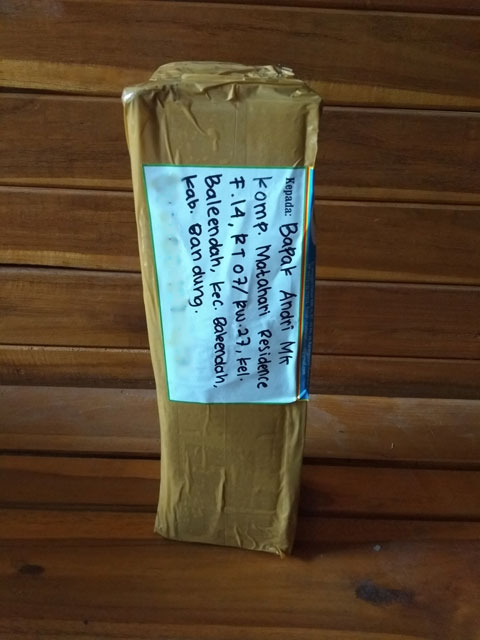 Kepada: Bapak Andri MK
Komp. Matahari Residence
F.14, RT 07/RW.27, kel.
Baleendah, kec. Baleendah,
kab. Bandung.